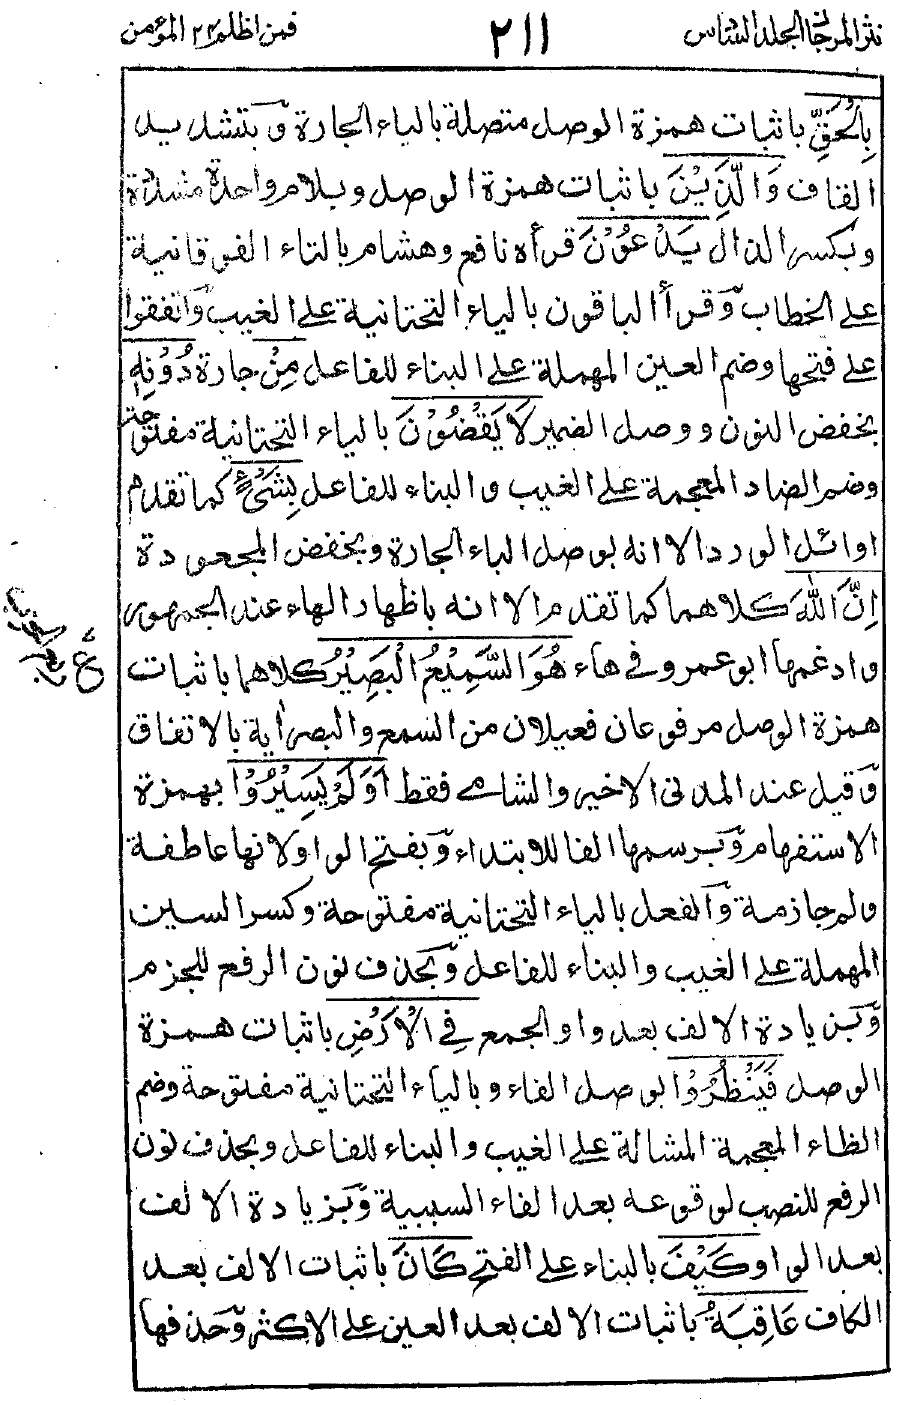 نثر المرجان الجلد السادس ٢١١ فمن اظلم ٢٤ المؤمن
بِالْحَقِّ باثبات همزة الوصل متصلة بالباء الجارة وبتشديد
القاف وَالَّذِيْنَ باثبات همزة الوصل وبلام واحدة مشددة
وبكسر الذال يَدْعُوْنَ قرأه نافع وهشام بالتاء الفوقانية
على الخطاب وقرأ الباقون بالياء التحتانية على الغيب واتفقوا
على فتحها وضم العين المهملة على البناء للفاعل مِنْ جارة دُوْنِهٖ
بخفض النون ووصل الضمير لَا يَقْضُوْنَ بالياء التحتانية مفتوحة
وضم الضاد المعجمة على الغيب والبناء للفاعل بِشَيْءٍ كما تقدم
اوائل الورد الا انه بوصل الباء الجارة وبخفض المجعودة
اِنَّ اللّٰهَ كلاهما كما تقدم الا انه باظهار الهاء عند الجمهور
وادغمها ابو عمرو في هاء هُوَ السَّمِيْعُ الْبَصِيْرُ كلاهما باثبات
همزة الوصل مرفوعان فعيلان من السمع والبصر اٰية بالاتفاق
وقيل عند المدني الاخير والشامي فقط اَوَلَمْ يَسِيْرُوْا بهمزة
الاستفهام وبرسمها الفا للابتداء وبفتح الواو لانها عاطفة
ولم جازمة والفعل بالياء التحتانية مفتوحة وكسر السين
المهملة على الغيب والبناء للفاعل وبحذف نون الرفع للجزم
وبزيادة الالف بعد واو الجمع فِي الْاَرْضِ باثبات همزة
الوصل فَيَنْظُرُوْا بوصل الفاء وبالياء التحتانية مفتوحة وضم
الظاء المعجمة المشالة على الغيب والبناء للفاعل وبحذف نون
الرفع للنصب لوقوعه بعد الفاء السببية وبزيادة الالف
بعد الواو كَيْفَ بالبناء على الفتح كَانَ باثبات الالف بعد
الكاف عَاقِبَةُ باثبات الالف بعد العين على الاكثر وحذفها